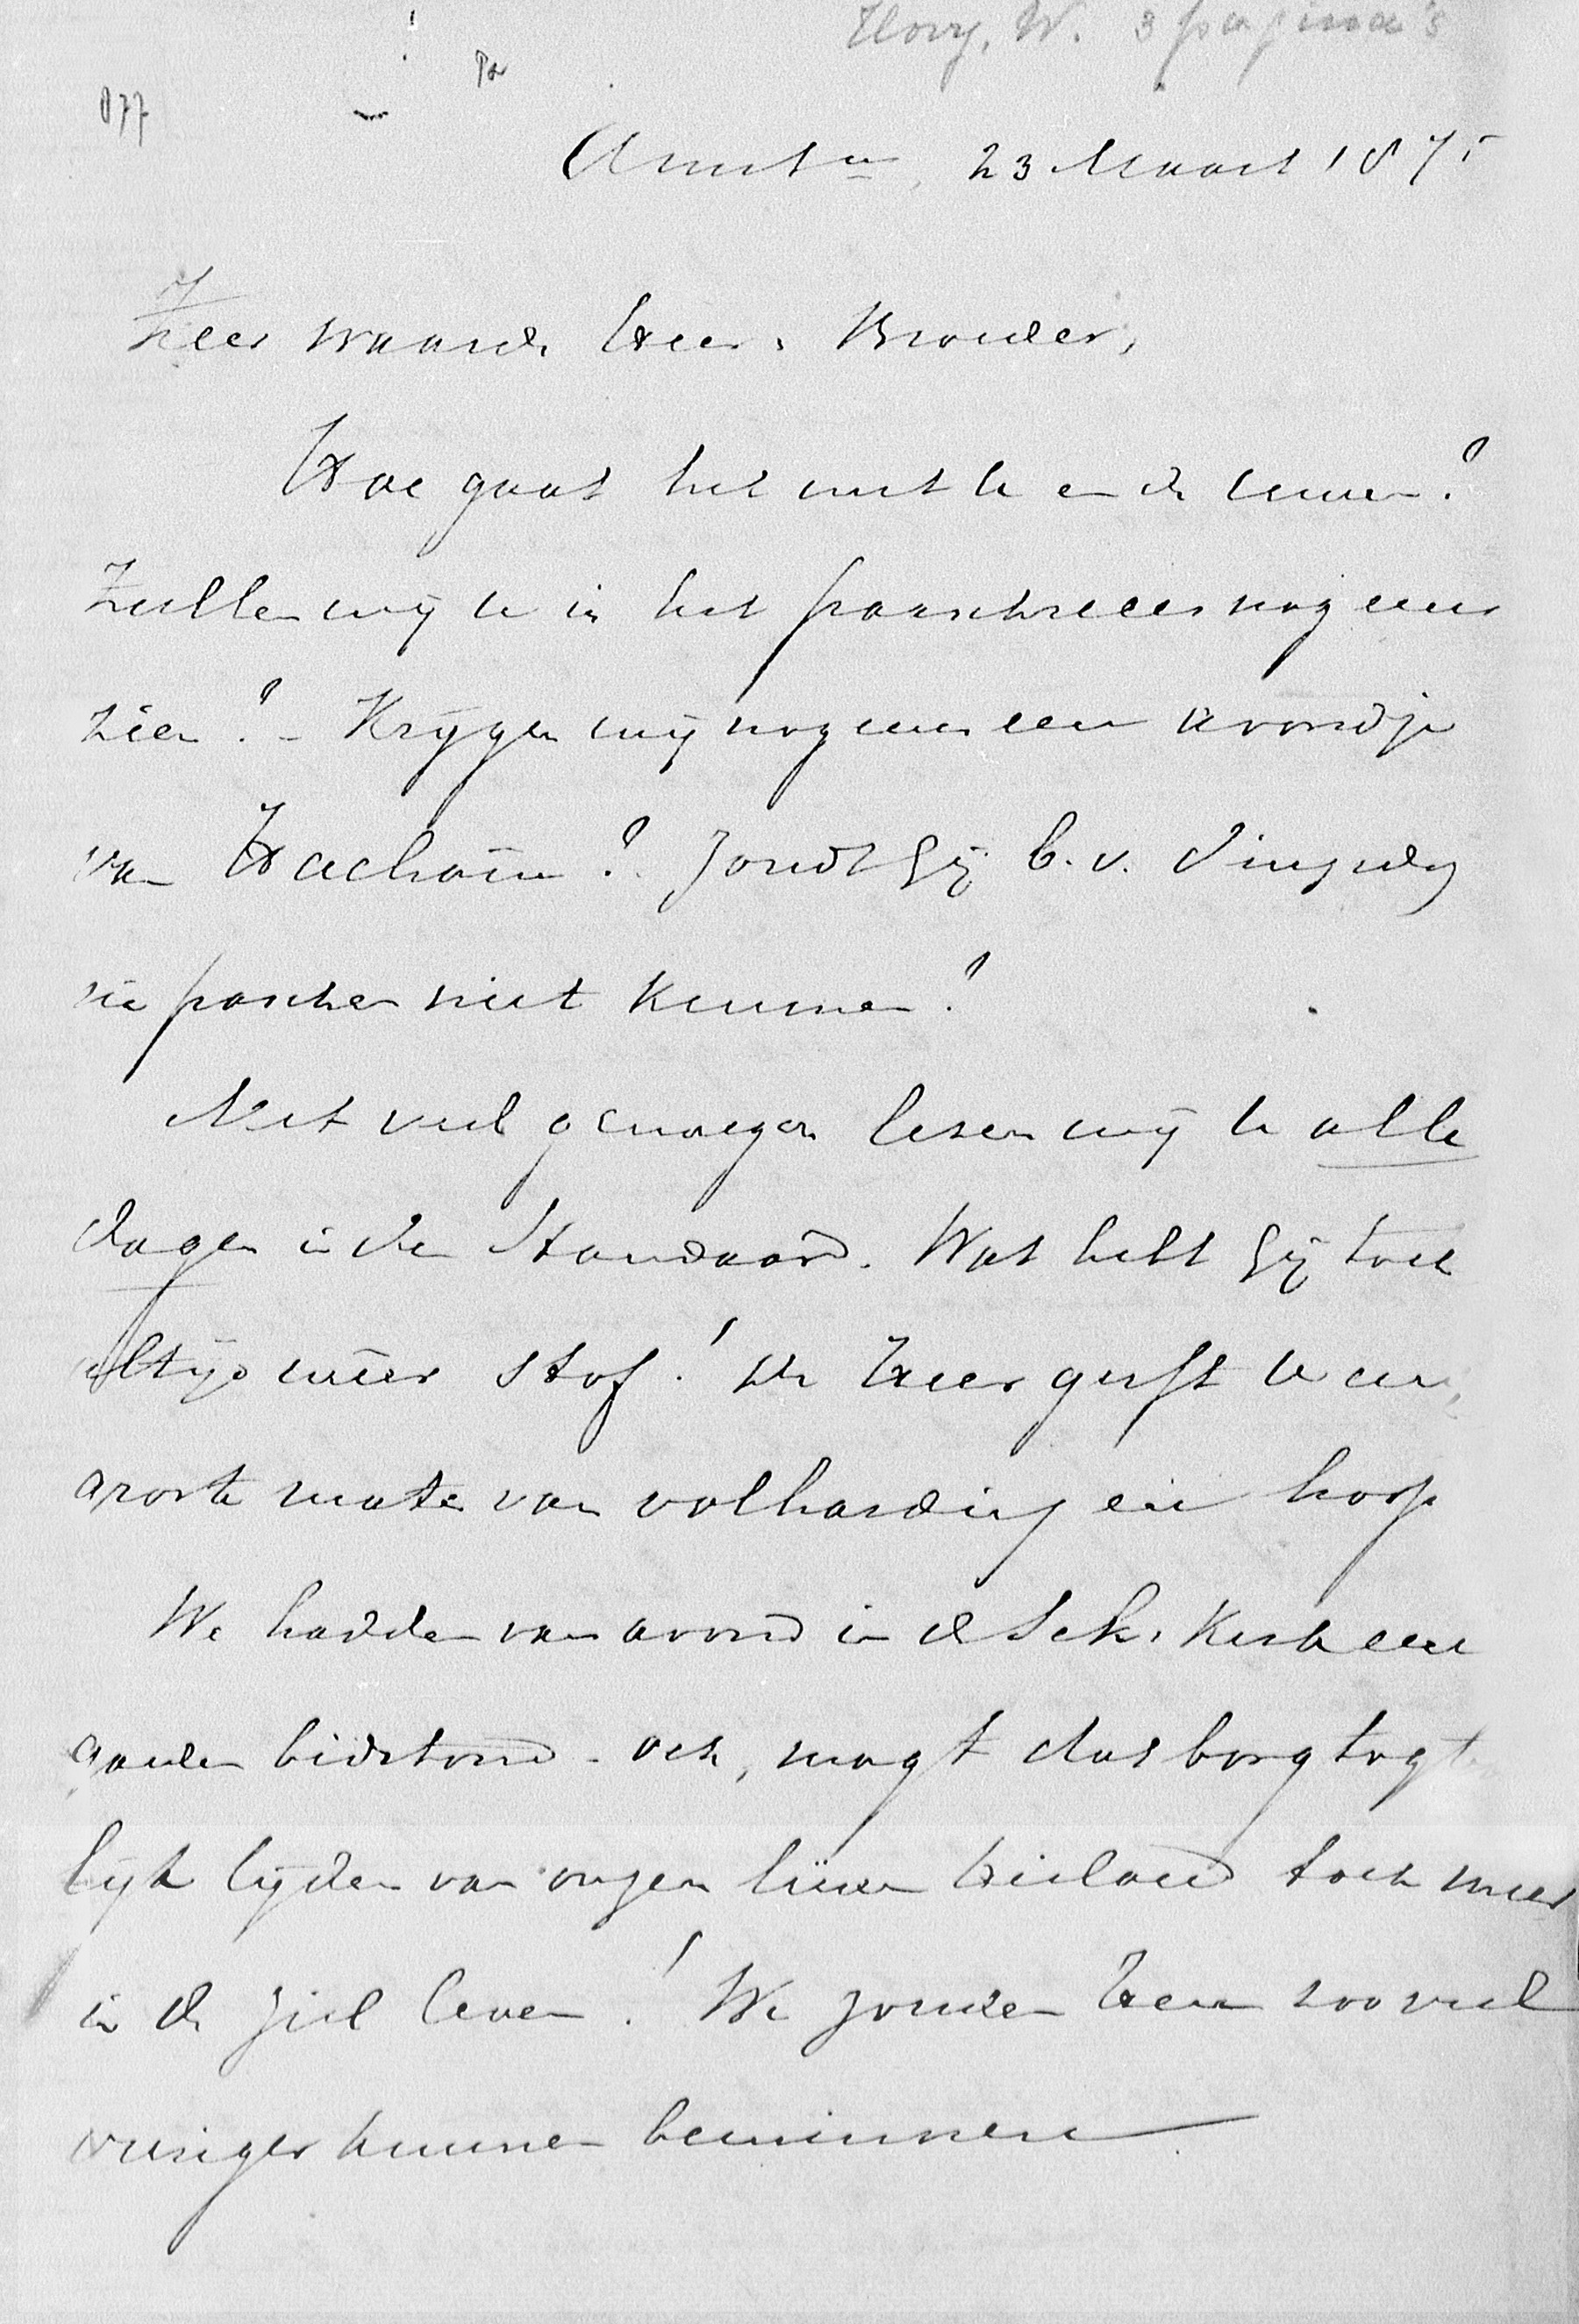 Hovy, W. 3 pagina's
877
Amstm, 23 Maart 1875
Zeer waarde Heer & Broeder,
Hoe gaat het met U en de uwen?
Zullen wij U in het paaschreces nog eens
zien? – Krijgen wij nog eens een avondje
van Hachaïm? Zoudt Gij b.v. Dingsdag
na paschen niet kunnen?
Met veel genoegen lezen wij U alle
dagen in den Standaard. Wat hebt Gij toch
altijd weêr stof! De Heer geeft U eene
groote mate van volharding en hoop
We hadden van avond in de Sch. Kerk een
gouden bidstond – och, mogt dat borgtogte
lijk lijden van onzen lieven Heiland toch meer
in de ziel leven! We zouden Hem zooveel
vuriger kunnen beminnen